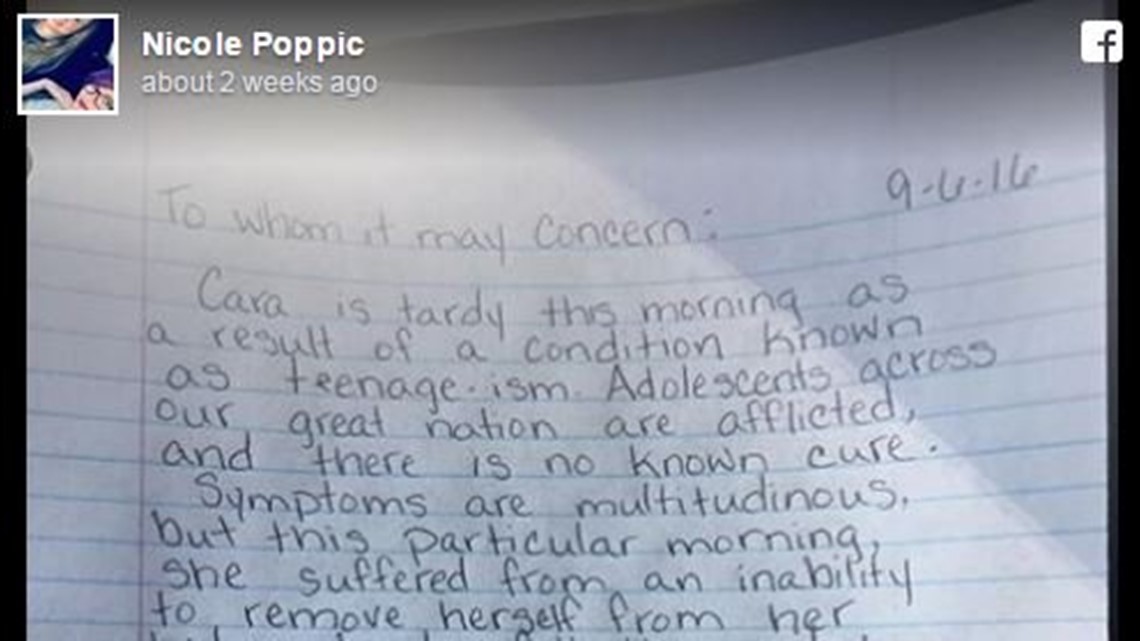 Nicole Poppic
about 2 weeks ago
f
9-6-16
To whom it may concern:
Cara is tardy this morning as
a result of a condition known
as teenage-ism. Adolescents across
our great nation are afflicted,
and there is no known cure.
Symptoms are multitudinous,
but this particular morning,
she suffered from an inability
to remove herself from her